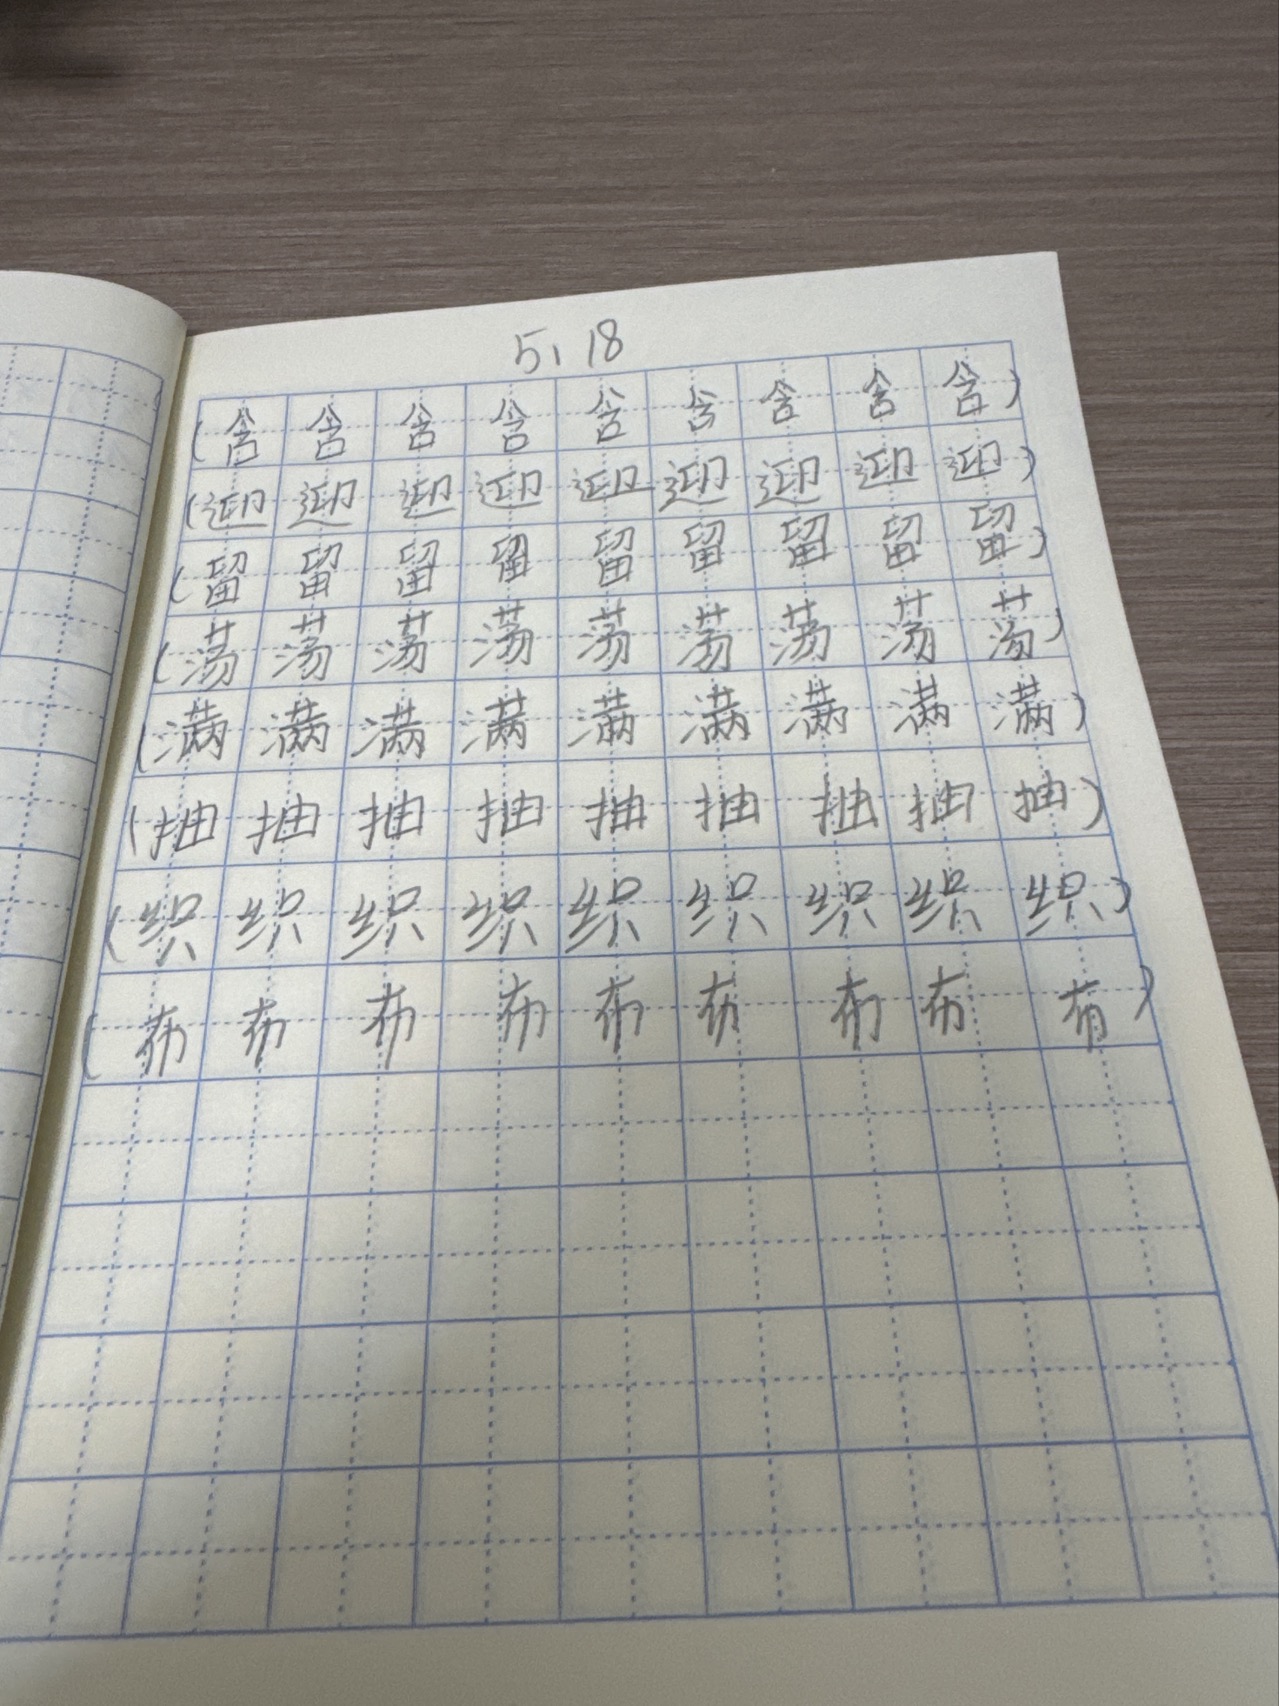 5.18
(含含含含含含含含含)
(迎迎迎迎迎迎迎迎迎)
(留留留留留留留留留)
(荡荡荡荡荡荡荡荡荡)
(满满满满满满满满满)
(抽抽抽抽抽抽抽抽抽)
(织织织织织织织织织)
(布布布布布布布布布)